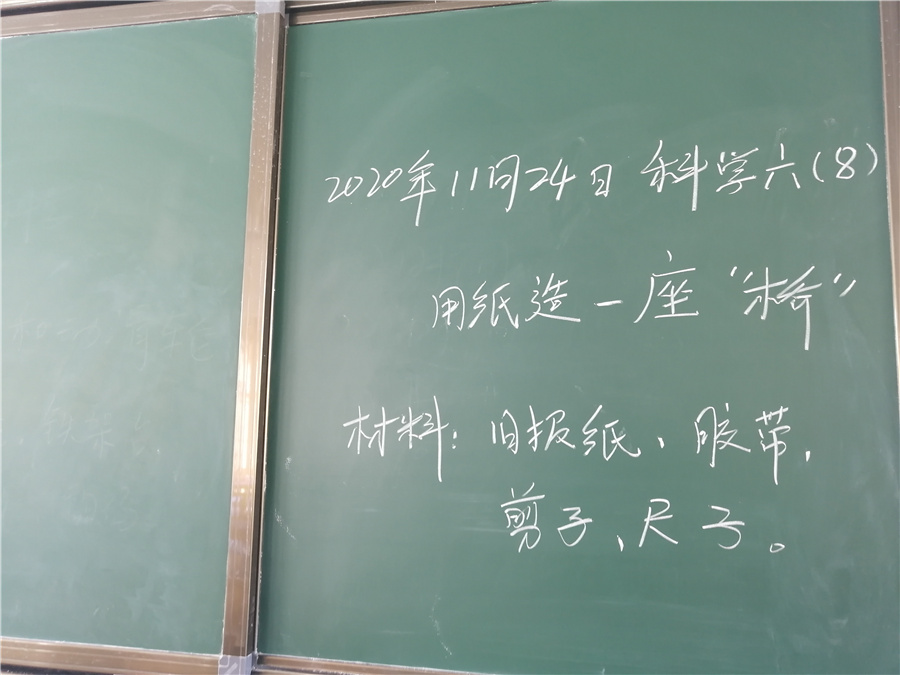 2020年11月24日 科学六(8)
用纸造一座“桥”
材料：旧报纸、胶带、
剪子、尺子。